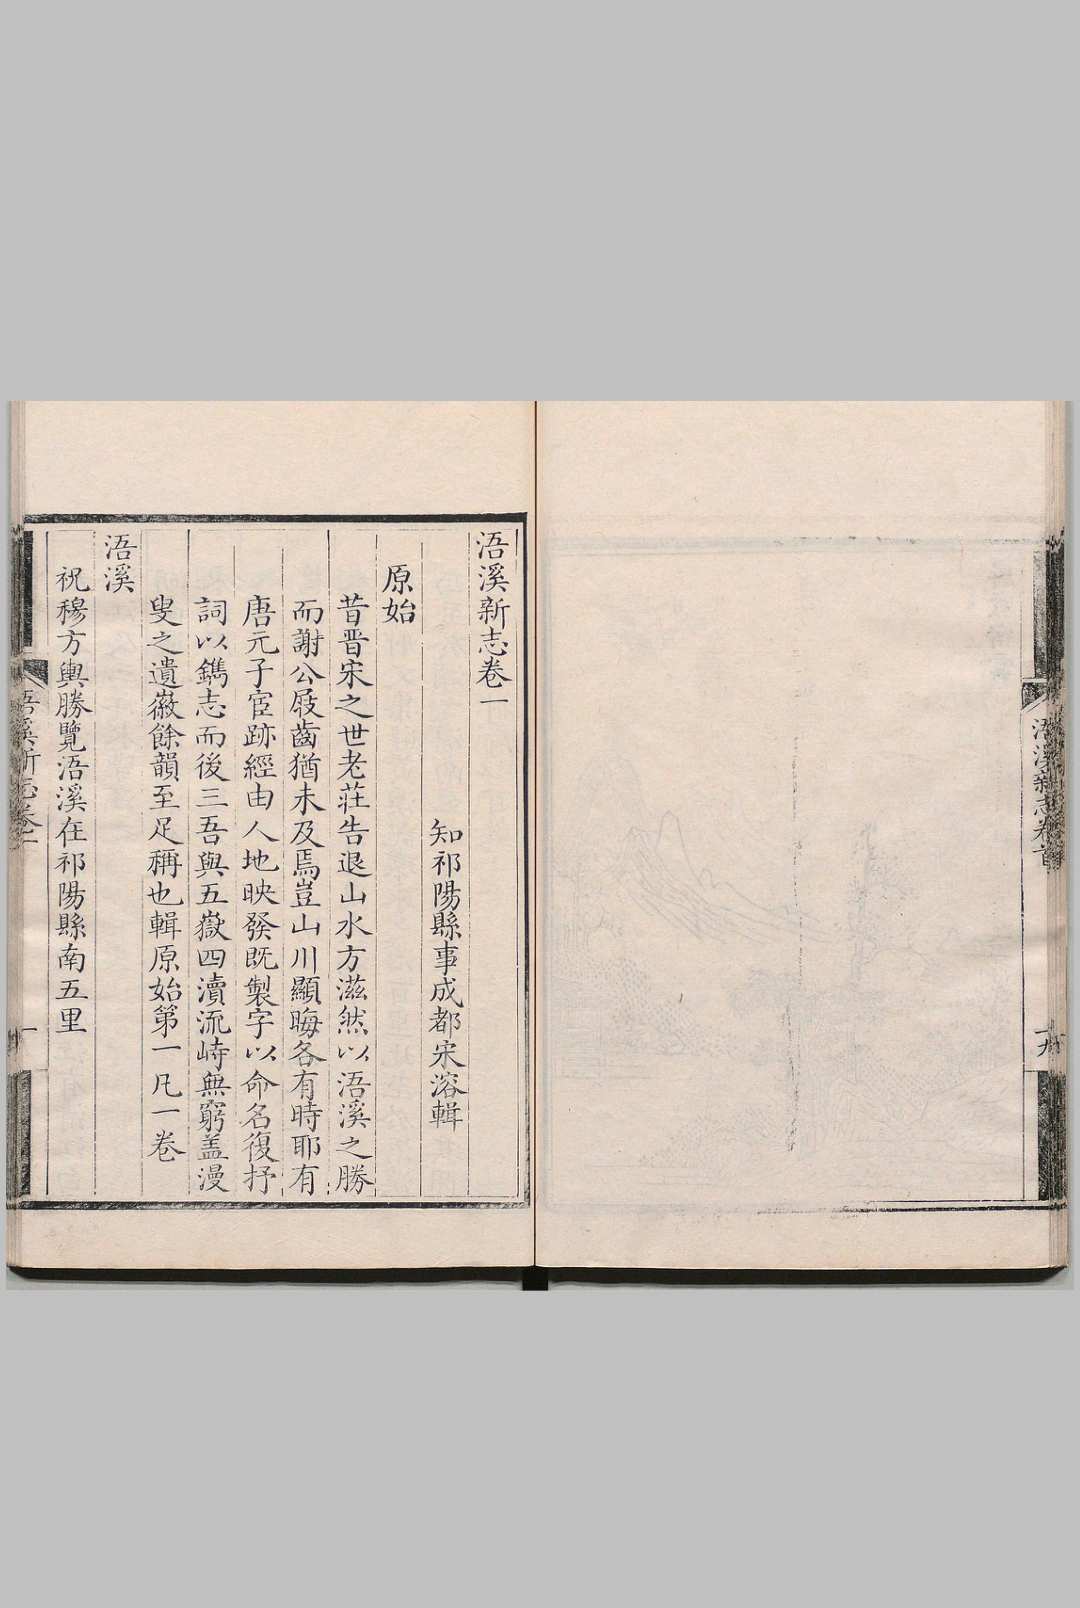 浯溪新志卷首
十九
浯溪新志卷一
知祁陽縣事成都宋溶輯
原始
昔晋宋之世老莊告退山水方滋然以浯溪之勝
而謝公屐齒猶未及焉豈山川顯晦各有時耶有
唐元子宦跡經由人地映發既製字以命名復抒
詞以鐫志而後三吾與五嶽四瀆流峙無窮盖漫
叟之遺徽餘韻至足稱也輯原始第一凡一卷
浯溪
祝穆方輿勝覽浯溪在祁陽縣南五里
浯溪新志卷一
一